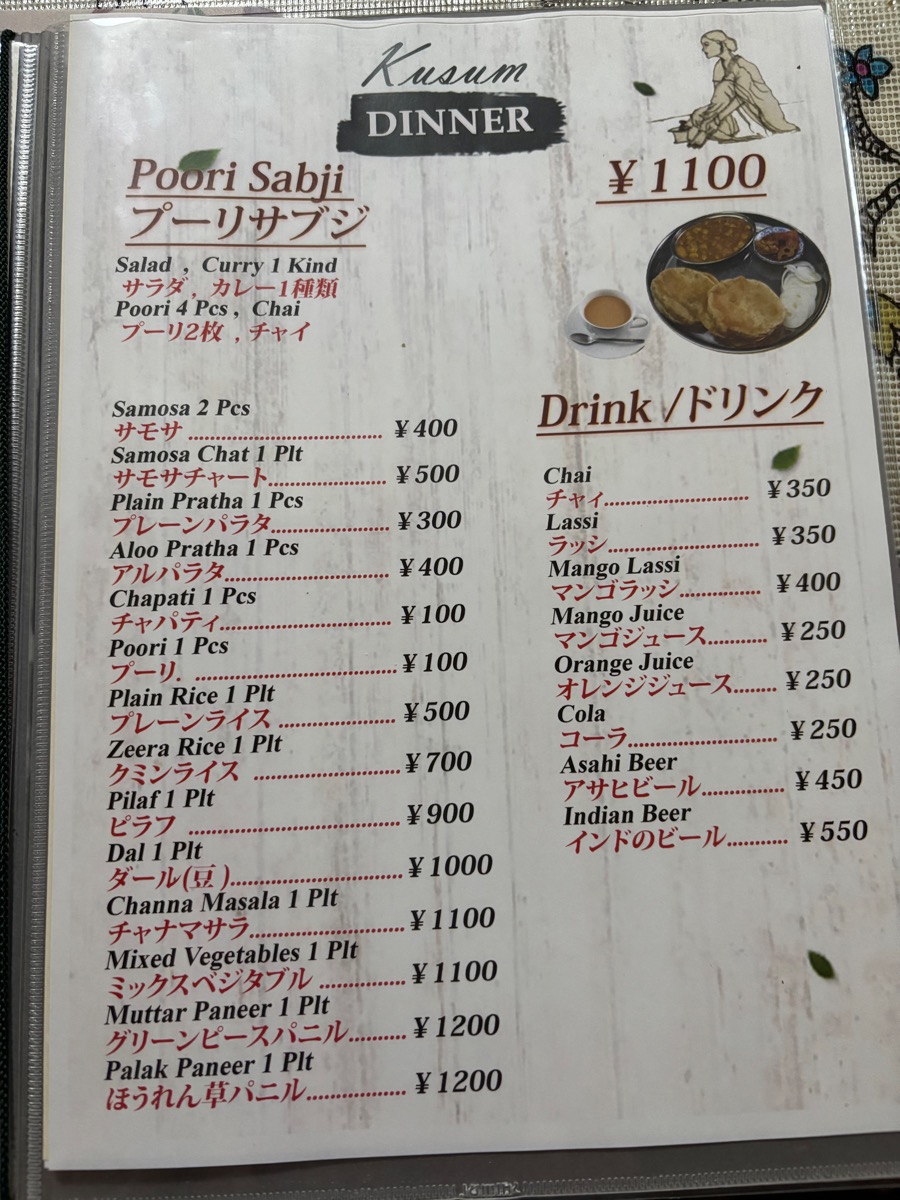 Kusum
DINNER
Poori Sabji
プーリサブジ
¥1100
Salad , Curry 1 Kind
サラダ , カレー1種類
Poori 4 Pcs , Chai
プーリ2枚 , チャイ
Samosa 2 Pcs
サモサ ................................. ¥400
Samosa Chat 1 Plt
サモサチャート.................... ¥500
Plain Pratha 1 Pcs
プレーンパラタ.................... ¥300
Aloo Pratha 1 Pcs
アルパラタ............................ ¥400
Chapati 1 Pcs
チャパティ............................. ¥100
Poori 1 Pcs
プーリ. ..................................¥100
Plain Rice 1 Plt
プレーンライス .................... ¥500
Zeera Rice 1 Plt
クミンライス .........................¥700
Pilaf 1 Plt
ピラフ ....................................¥900
Dal 1 Plt
ダール(豆 ).............................¥1000
Channa Masala 1 Plt
チャナマサラ..........................¥1100
Mixed Vegetables 1 Plt
ミックスベジタブル ...............¥1100
Muttar Paneer 1 Plt
グリーンピースパニル..........¥1200
Palak Paneer 1 Plt
ほうれん草パニル................. ¥1200
Drink /ドリンク
Chai
チャィ......................... ¥350
Lassi
ラッシ.......................... ¥350
Mango Lassi
マンゴラッシ.............. ¥400
Mango Juice
マンゴジュース.......... ¥250
Orange Juice
オレンジジュース....... ¥250
Cola
コーラ.......................... ¥250
Asahi Beer
アサヒビール.............. ¥450
Indian Beer
インドのビール........... ¥550